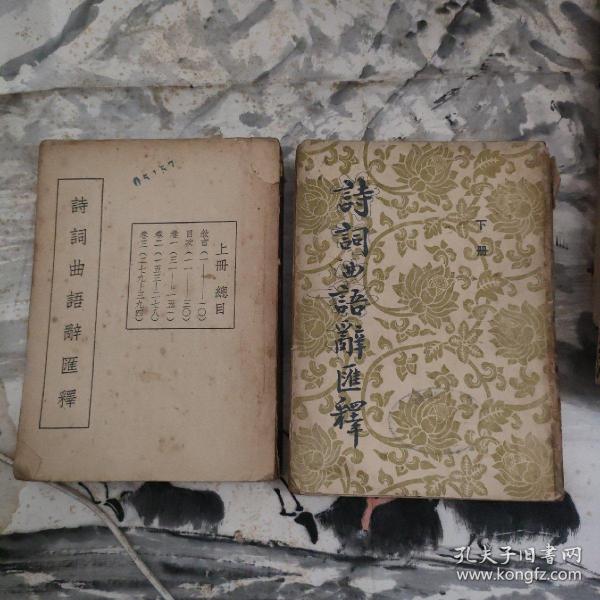 詩詞曲語辭匯釋
上冊 總目
敘言(一——一〇)
目次(一一——三〇)
卷一(三一——一五一)
卷二(一五三——二七八)
卷三(二七九——三九四)
詩詞曲語辭匯釋
下冊
孔夫子旧書网
www.kongfz.com